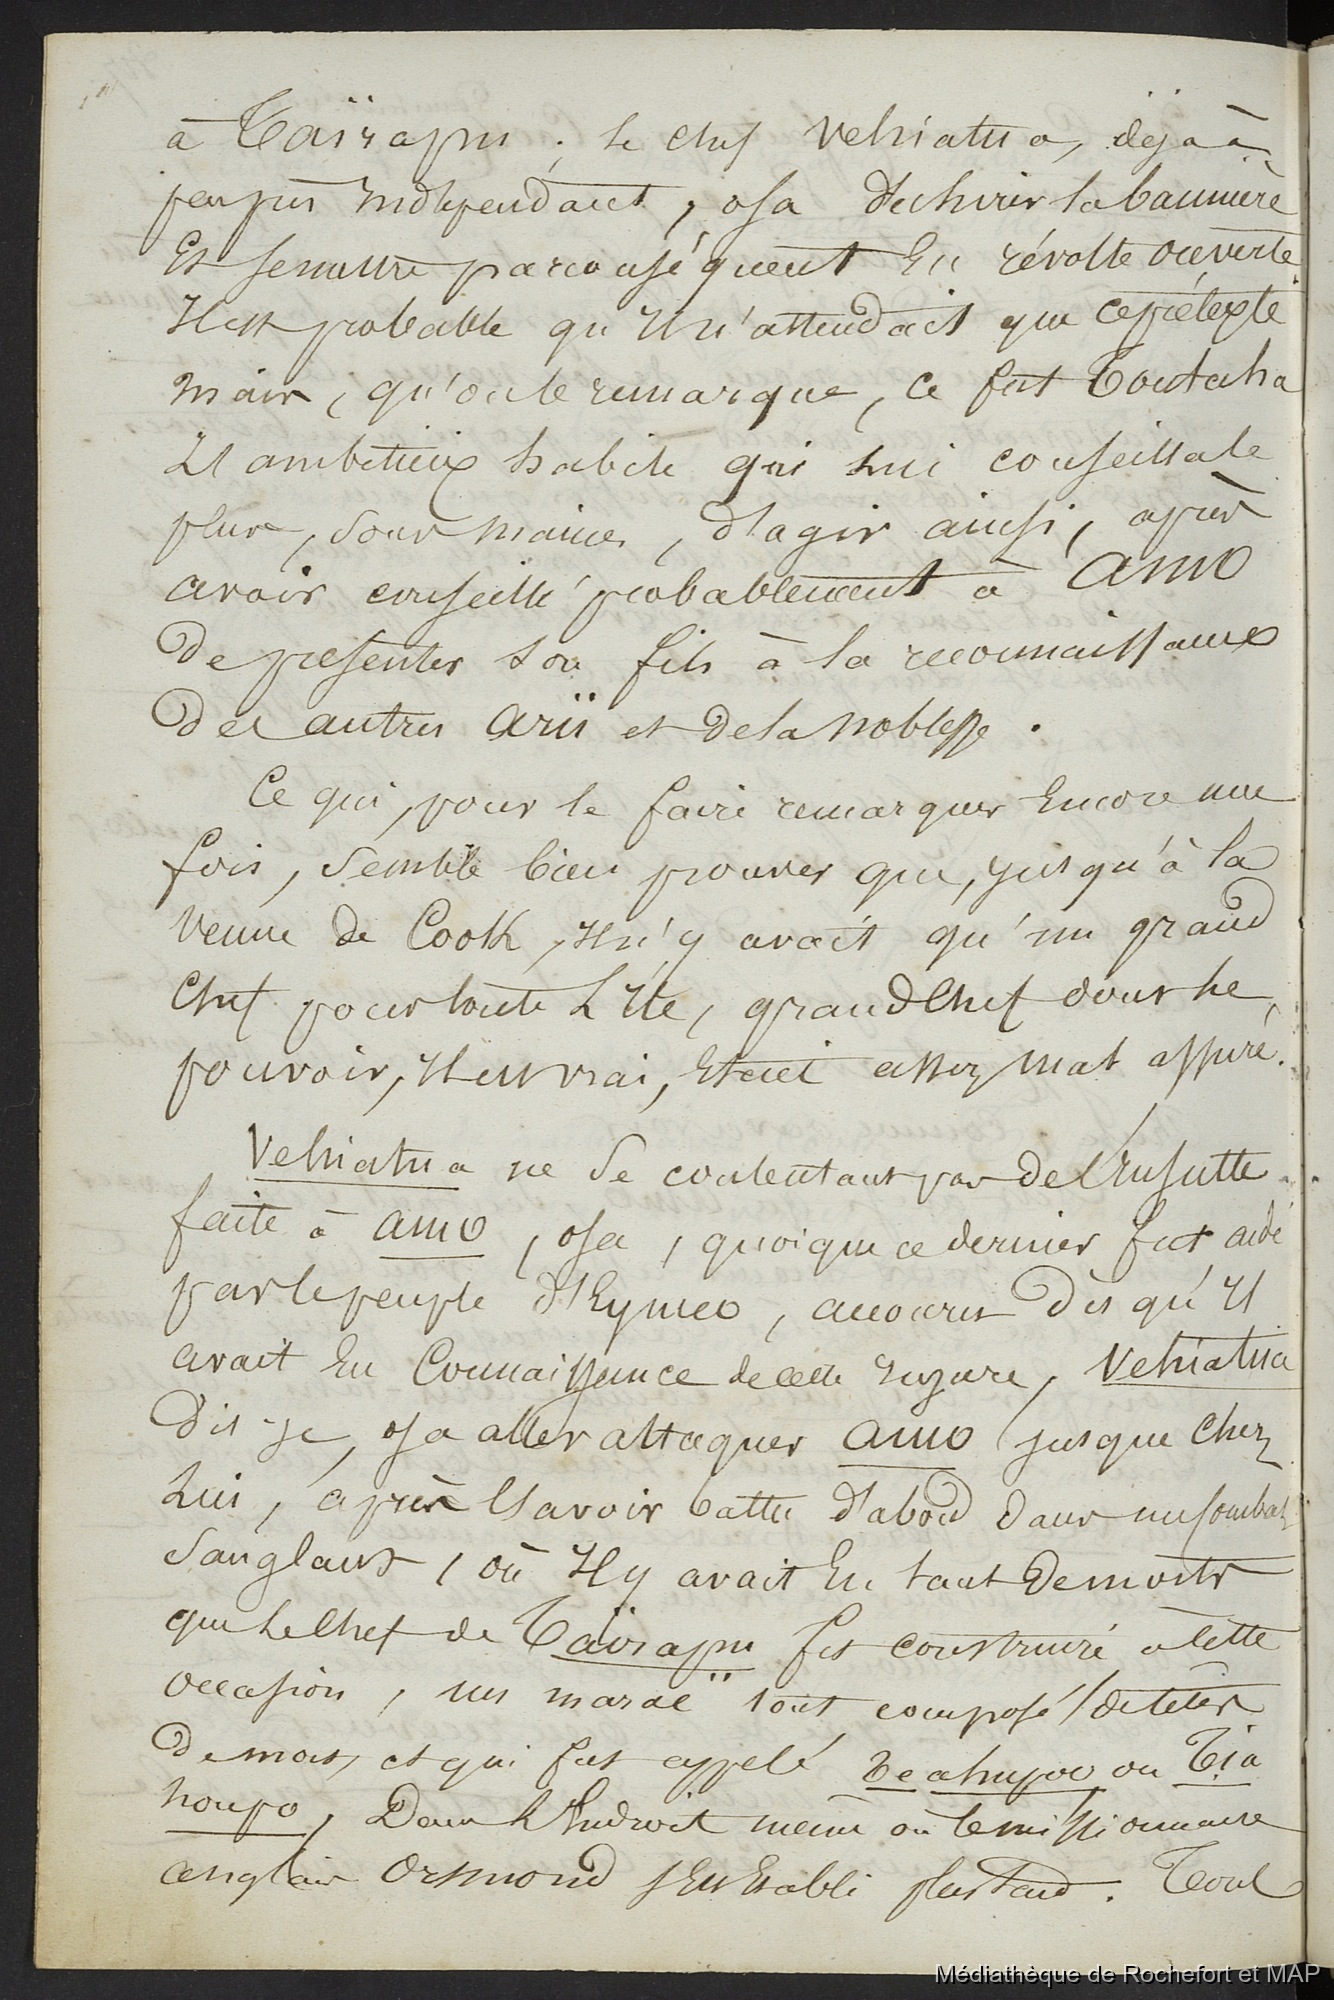 à Taïrapu ; le chef Vehiatua, déjà à
peu près indépendant, osa déchirer la bannière
et se mettre par conséquent en révolte ouverte.
Il est probable qu'il n'attendait que ce prétexte
mais, qu'on le remarque, ce fut Toutaha
l'ambitieux habile qui lui conseilla le
plus, sous main, d'agir ainsi, après
avoir conseillé probablement à Amo
de présenter son fils à la reconnaissance
des autres Arii et de la noblesse.
Ce qui, pour le faire remarquer encore une
fois, semble bien prouver que, jusqu'à la
venue de Cook, il n'y avait qu'un grand
chef pour toute l'île, grand chef dont le
pouvoir, il est vrai, était assez mal assuré.
Vehiatua ne se contentant pas de l'insulte
faite à Amo, osa, quoique ce dernier fut aidé
par le peuple d'Eymeo, accouru dès qu'il
avait eu connaissance de cette injure, Vehiatua
dis-je, osa aller attaquer Amo jusque chez
lui, après l'avoir battu d'abord dans un combat
sanglant, où il y avait eu tant de morts
que le chef de Taïrapu fit construire à cette
occasion, un maraë tout composé de têtes
de morts, et qui fut appelé Teahupoo ou Tia
houpo, dans l'endroit même où le missionnaire
anglais Orsmond s'est établi plus tard. Tout
Médiathèque de Rochefort et MAP